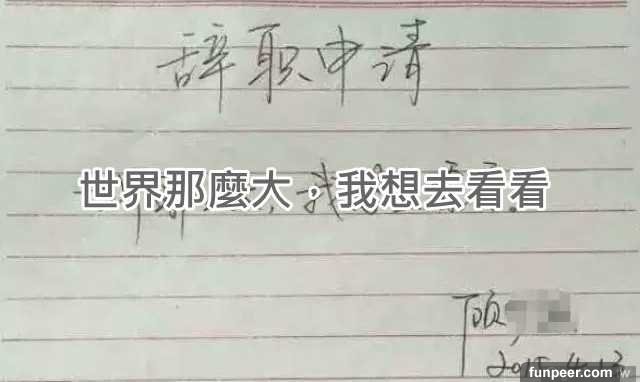 辞职申请
世界那麼大，我想去看看
顾
2015.4.13
funpeer.com